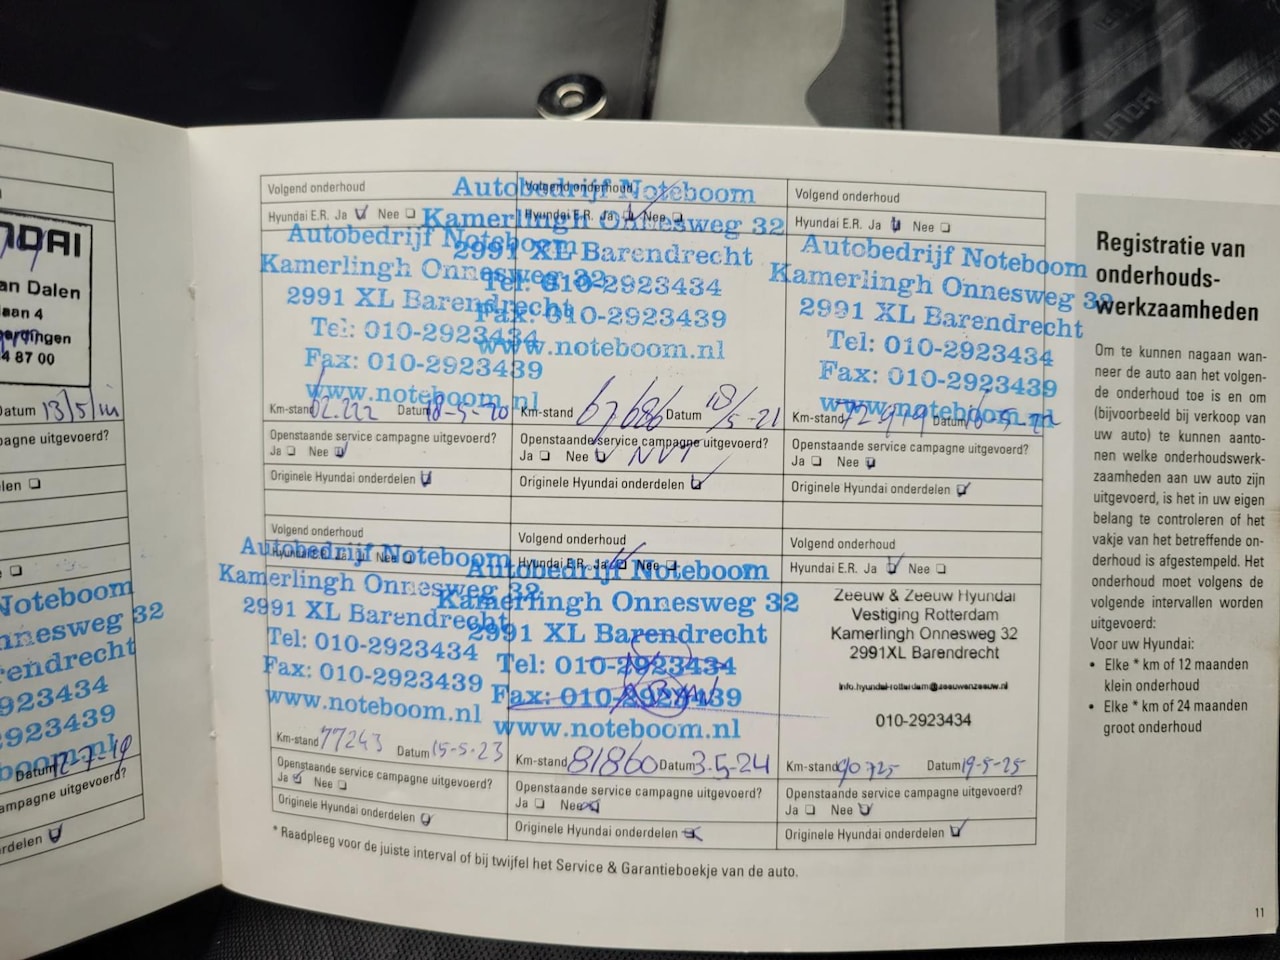 NDAI
an Dalen
laan 4
4 87 00
Datum 13/5/
pagne uitgevoerd?
len
Noteboom
nnesweg 32
rendrecht
923434
923439
boom.nl
Datum 12-7-19
ampagne uitgevoerd?
rdelen
Volgend onderhoud
Hyundai E.R. Ja Nee
Autobedrijf Noteboom
Kamerlingh Onnesweg 32
2991 XL Barendrecht
Tel: 010-2923434
Fax: 010-2923439
www.noteboom.nl
Km-stand 62.222 Datum 18-5-20
Openstaande service campagne uitgevoerd?
Ja Nee
Originele Hyundai onderdelen
Volgend onderhoud
Hyundai E.R. Ja Nee
Autobedrijf Noteboom
Kamerlingh Onnesweg 32
2991 XL Barendrecht
Tel: 010-2923434
Fax: 010-2923439
www.noteboom.nl
Km-stand 67686 Datum 18/5-21
Openstaande service campagne uitgevoerd?
Ja Nee NVT
Originele Hyundai onderdelen
Volgend onderhoud
Hyundai E.R. Ja Nee
Autobedrijf Noteboom
Kamerlingh Onnesweg 32
2991 XL Barendrecht
Tel: 010-2923434
Fax: 010-2923439
www.noteboom.nl
Km-stand Datum
Openstaande service campagne uitgevoerd?
Ja Nee
Originele Hyundai onderdelen
Volgend onderhoud
Hyundai E.R. Ja Nee
Autobedrijf Noteboom
Kamerlingh Onnesweg 32
2991 XL Barendrecht
Tel: 010-2923434
Fax: 010-2923439
www.noteboom.nl
Km-stand 77243 Datum 15-5-23
Openstaande service campagne uitgevoerd?
Ja Nee
Originele Hyundai onderdelen
Volgend onderhoud
Hyundai E.R. Ja Nee
Autobedrijf Noteboom
Kamerlingh Onnesweg 32
2991 XL Barendrecht
Tel: 010-2923434
Fax: 010-2923439
www.noteboom.nl
Km-stand 81860 Datum 3-5-24
Openstaande service campagne uitgevoerd?
Ja Nee
Originele Hyundai onderdelen
Volgend onderhoud
Hyundai E.R. Ja Nee
Zeeuw & Zeeuw Hyundai
Vestiging Rotterdam
Kamerlingh Onnesweg 32
2991XL Barendrecht
info.hyundai-rotterdam@zeeuwenzeeuw.nl
010-2923434
Km-stand 90725 Datum 19-5-25
Openstaande service campagne uitgevoerd?
Ja Nee
Originele Hyundai onderdelen
* Raadpleeg voor de juiste interval of bij twijfel het Service & Garantieboekje van de auto.
Registratie van
onderhouds-
werkzaamheden
Om te kunnen nagaan wan-
neer de auto aan het volgen-
de onderhoud toe is en om
(bijvoorbeeld bij verkoop van
uw auto) te kunnen aanto-
nen welke onderhoudswerk-
zaamheden aan uw auto zijn
uitgevoerd, is het in uw eigen
belang te controleren of het
vakje van het betreffende on-
derhoud is afgestempeld. Het
onderhoud moet volgens de
volgende intervallen worden
uitgevoerd:
Voor uw Hyundai:
• Elke * km of 12 maanden
klein onderhoud
• Elke * km of 24 maanden
groot onderhoud
11